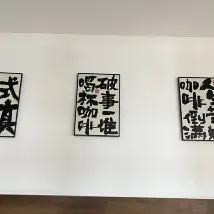 式真
破事一堆
喝杯咖啡
咖啡倒满